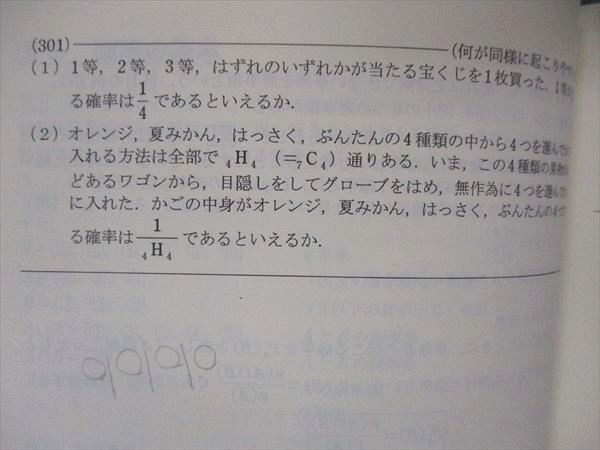 (301) (何が同様に起こりやす
(1) 1等，2等，3等，はずれのいずれかが当たる宝くじを1枚買った．1等の
る確率は 1/4 であるといえるか．
(2) オレンジ，夏みかん，はっさく，ぶんたんの4種類の中から4つを選んで
入れる方法は全部で ₄H₄ (=₇C₄) 通りある．いま，この4種類の果物が
どあるワゴンから，目隠しをしてグローブをはめ，無作為に4つを選んで
に入れた．かごの中身がオレンジ，夏みかん，はっさく，ぶんたんの4つ
る確率は 1/₄H₄ であるといえるか．